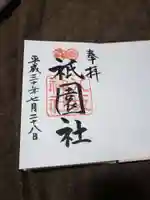 奉拝
祇園社
平成三十年七月二十八日